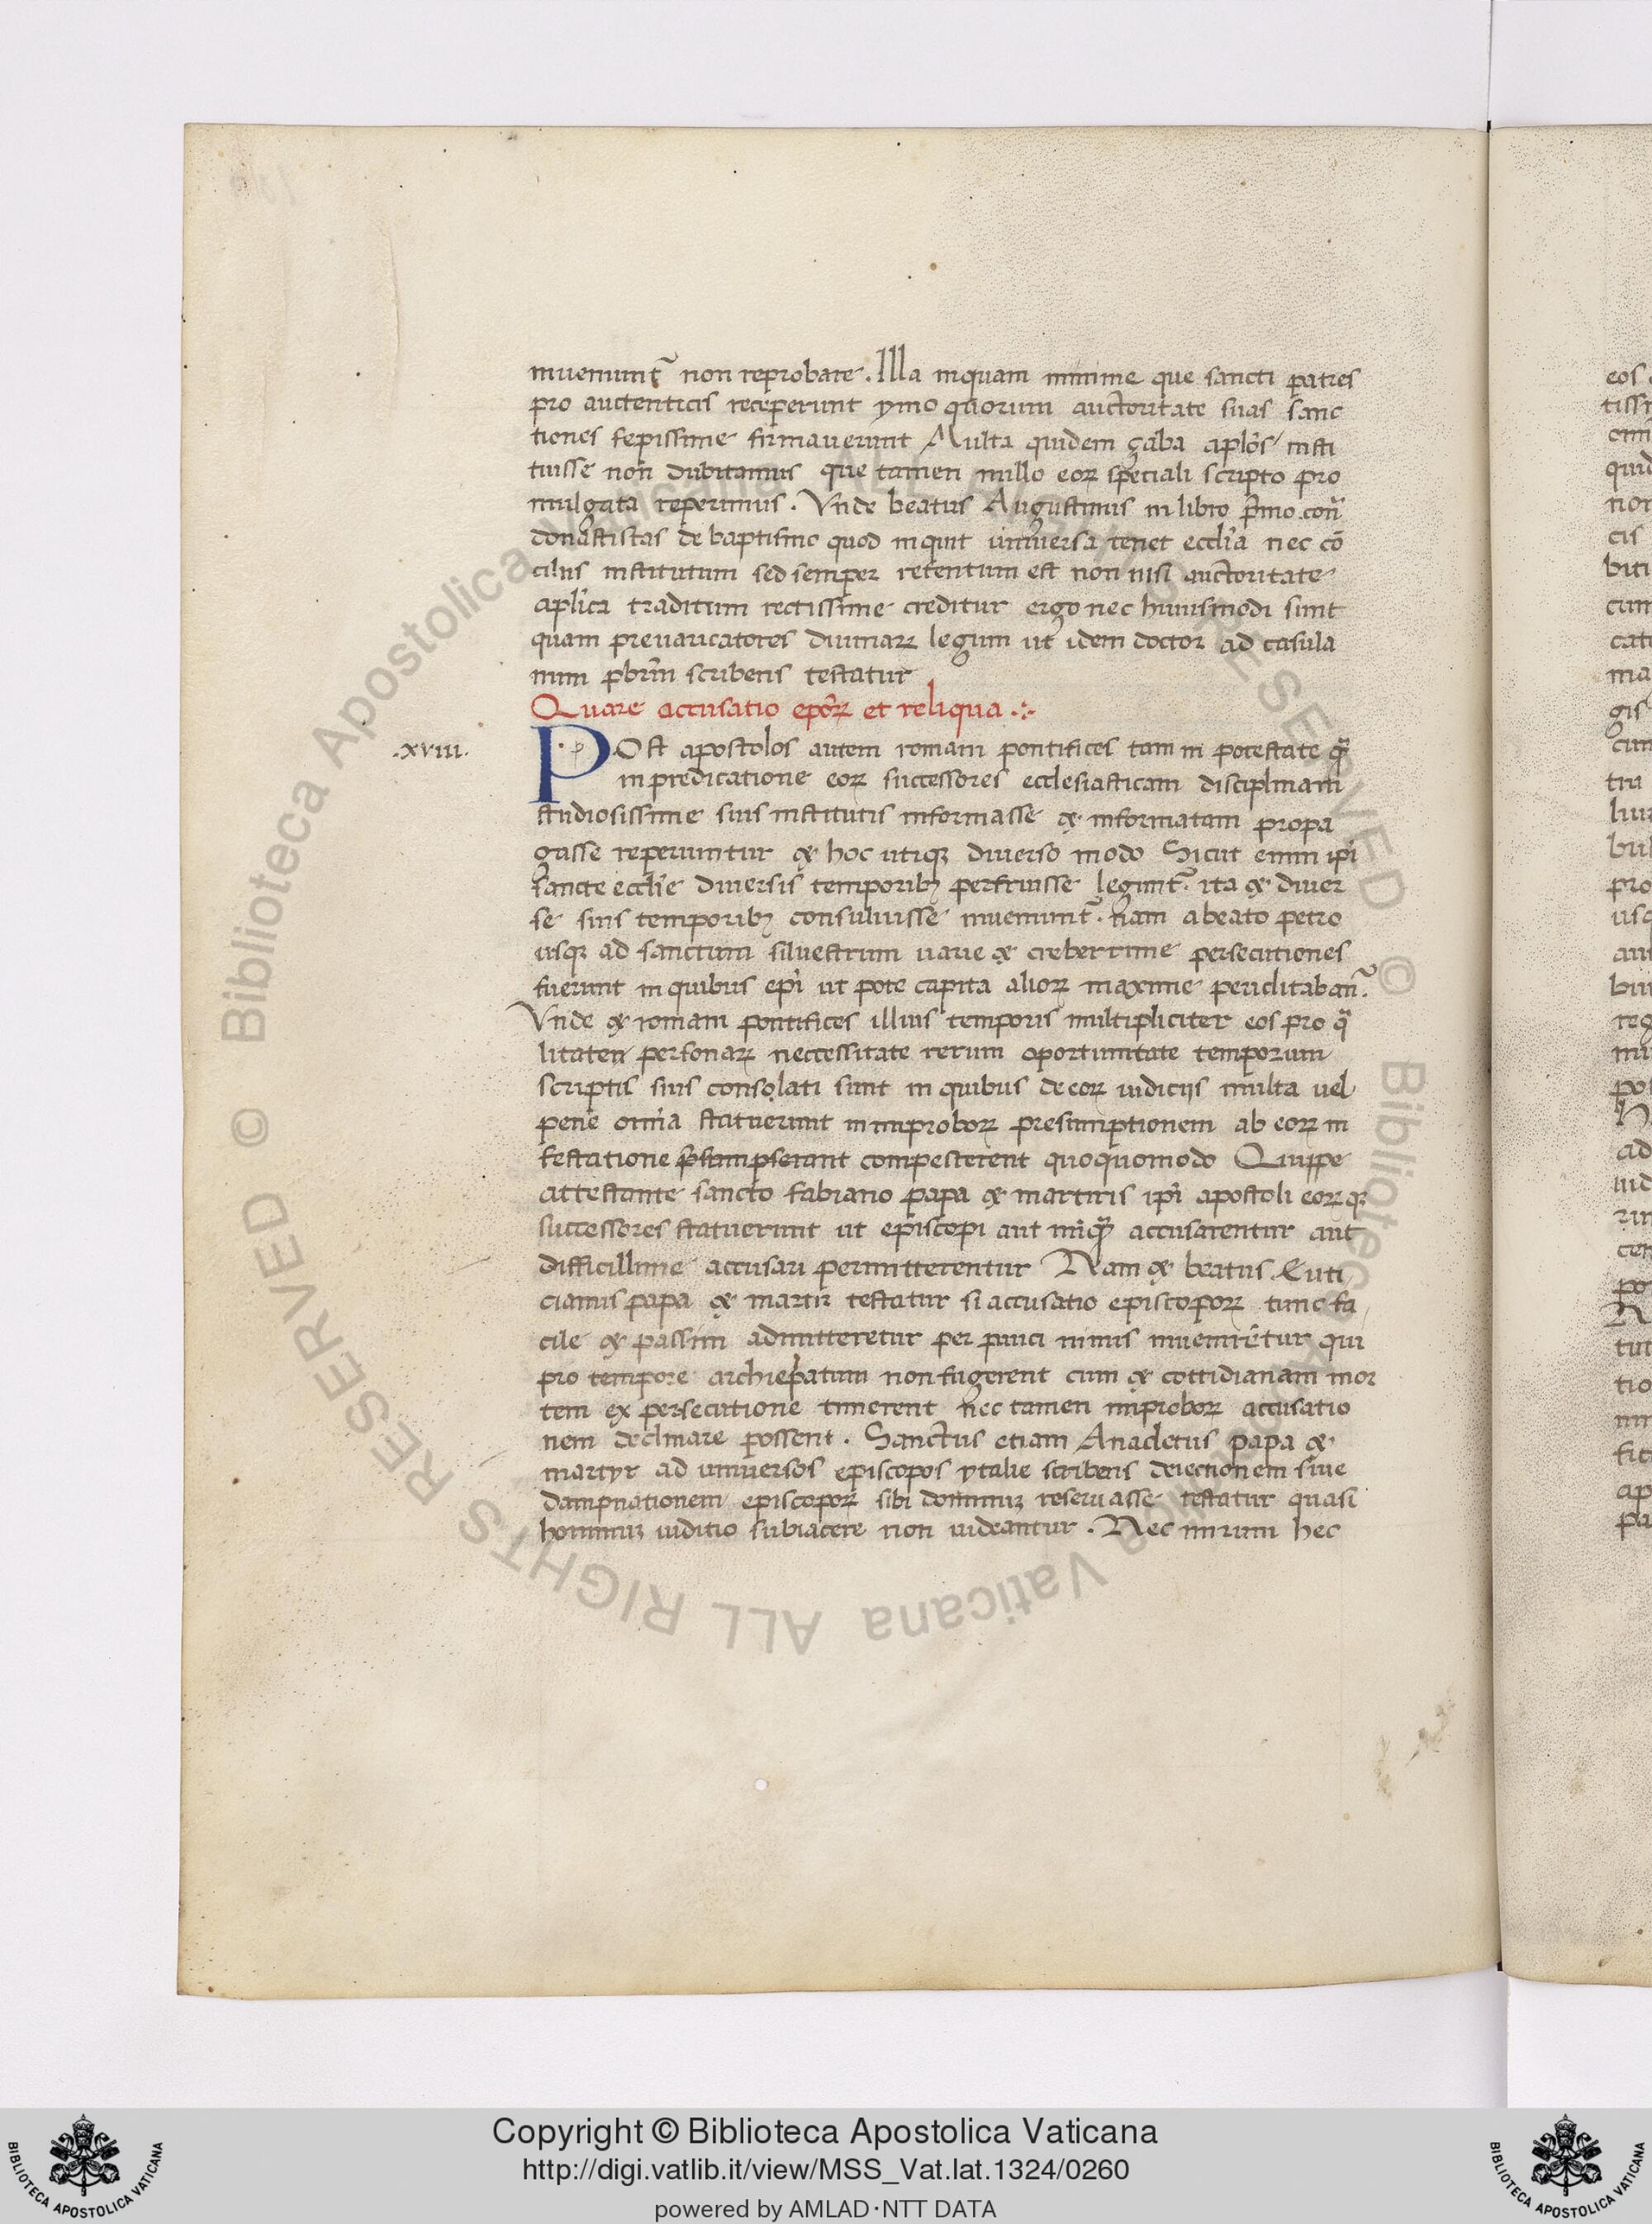 inueniunt̃ non reprobare. Illa inquam minime que sancti patres
pro auctenticis receperunt ymo quorum auctoritate suas sanc
tiones sepissime firmauerunt Multa quidem aplos̃ insti
tuisse non dubitamus que tamen nullo eoꝝ speciali scripto pro
mulgata reperimus. Vnde beatus Augustinus in libro p̃mo con̄
donastistas de baptismo quod inquit uniuersa tenet eccłia nec cō
ciliis institutum sed semper retentum est non nisi auctoritate
apłica traditum rectissime creditur ergo nec huiusmodi sunt
quam preuaricatores diuinaꝝ legum ut idem doctor ad casula
num pbr̃m scribens testatur
Quare accusatio ep̃oꝝ et reliqua
.xviii.
POst apostolos autem romani pontifices tam in potestate q̃
in predicatione eoꝝ successores ecclesiasticam disciplinam
studiosissime suis institutis informasse & informatam propa
gasse reperiuntur & hoc utiqꝫ diuerso modo Sicut enim ip̃i
sancte eccłie diuersis temporibꝫ perfruisse legunt̃. ita & diuer
se suis temporibꝫ consuluisse inueniunt̃. nam a beato petro
usqꝫ ad sanctum siluestrum uarie & creberrime persecutiones
fuerunt in quibus ep̃i ut pote capita alioꝝ maxime periclitaban̄.
Vnde & romani pontifices illius temporis multipliciter eos pro q̃
litaten personaꝝ neccessitate rerum oportunitate temporum
scriptis suis consolati sunt in quibus de eoꝝ iudicijs multa uel
pene omĩa statuerunt in improboꝝ presumptionem ab eoꝝ in
festatione p̃sumpserant compescerent quoquomodo Quippe
attestante sancto fabiano papa & martiris ip̃i apostoli eoꝝqꝫ
successores statuerunt ut episcopi aut nũq̃ accusarentur aut
difficillime accusari permitterentur Nam & beatus Euti
cianus papa & martir testatur si accusatio episcopoꝝ tunc fa
cile & passim admitteretur per pauci nimis inuenirẽtur qui
pro tempore archiep̃atum non fugerent cum & cottidianam mor
tem ex persecutione timerent nec tamen improboꝝ accusatio
nem declinare possent. Sanctus etiam Anacletus papa &
martyr ad uniuersos episcopos ytalie scribens deiectionem siue
dampnationem episcopoꝝ sibi dominuꝫ reseruasse testatur quasi
hominuꝫ iuditio subiacere non uideantur. Nec mirum hec
Copyright © Biblioteca Apostolica Vaticana
http://digi.vatlib.it/view/MSS_Vat.lat.1324/0260
powered by AMLAD·NTT DATA
BIBLIOTECA APOSTOLICA VATICANA
BIBLIOTECA APOSTOLICA VATICANA
© Biblioteca Apostolica Vaticana ALL RIGHTS RESERVED © Biblioteca Apostolica Vaticana ALL RIGHTS RESERVED